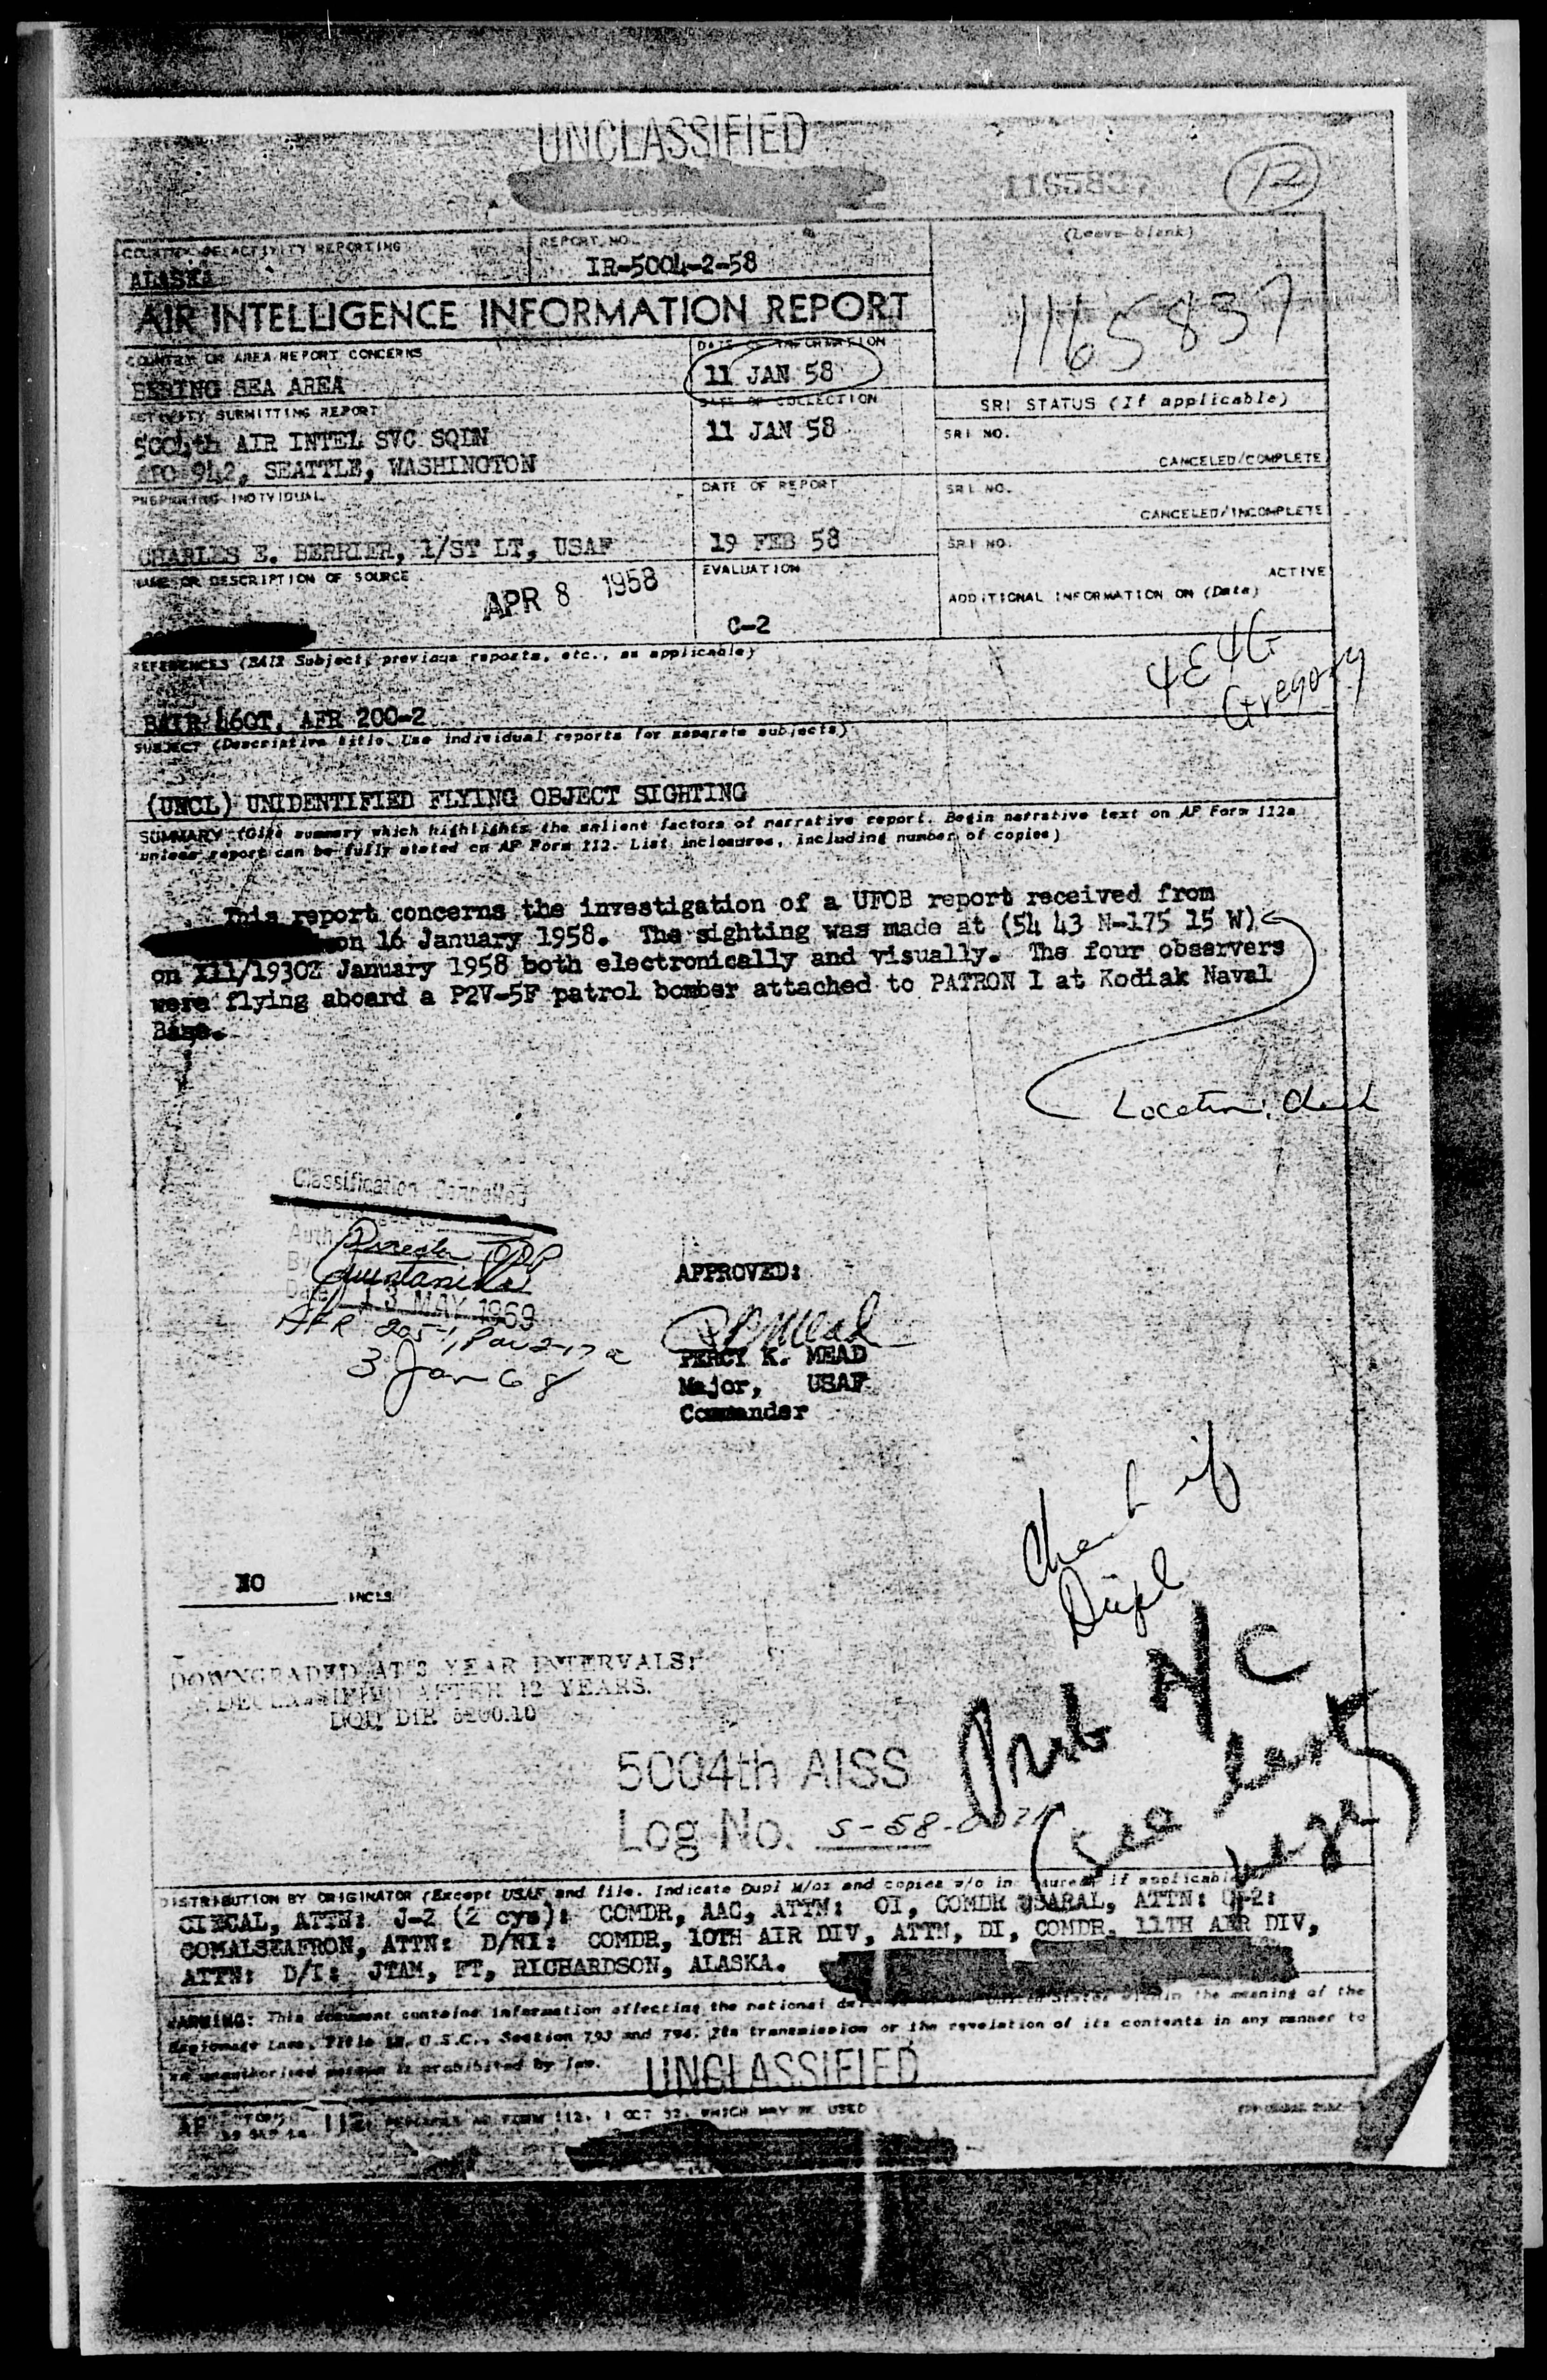 UNCLASSIFIED
1165837
12
REPORTING
REPORT NO.
(Leave blank)
ALASKA
IR-5004-2-58
AIR INTELLIGENCE INFORMATION REPORT
1165837
COUNTRY OR AREA REPORT CONCERNS
DATE OF INFORMATION
BERING SEA AREA
11 JAN 58
ACTIVITY SUBMITTING REPORT
DATE OF COLLECTION
SRI STATUS (If applicable)
5004th AIR INTEL SVC SQDN
11 JAN 58
SRI NO.
APO 942, SEATTLE, WASHINGTON
CANCELED/COMPLETE
PREPARING INDIVIDUAL
DATE OF REPORT
SRI NO.
CANCELED/INCOMPLETE
CHARLES E. BERRIER, 1/ST LT, USAF
19 FEB 58
SRI NO.
NAME OR DESCRIPTION OF SOURCE
APR 8 1958
EVALUATION
ACTIVE
ADDITIONAL INFORMATION ON (Date)
C-2
REFERENCES (BAIR Subject, previous reports, etc., as applicable)
4E4G
Gregory
AFR 200-2
SUBJECT (Descriptive title. Use individual reports for separate subjects)
(UNCL) UNIDENTIFIED FLYING OBJECT SIGHTING
SUMMARY (Give summary which highlights the salient factors of narrative report. Begin narrative text on AF Form 112a
unless report can be fully stated on AF Form 112. List inclosures, including number of copies)
This report concerns the investigation of a UFOB report received from
on 16 January 1958. The sighting was made at (54 43 N-175 15 W)
on 11/1930Z January 1958 both electronically and visually. The four observers
were flying aboard a P2V-5F patrol bomber attached to PATRON I at Kodiak Naval
Base.
Location:
Classification Cancelled
Auth
By Quintanilla
Date 13 MAY 1969
AFR 205-1, Par 2-17 a
3 Jan 68
APPROVED:
PERCY K. MEAD
Major, USAF
Commander
Check if
Dupl
NO INCLS
DOWNGRADED AT 3 YEAR INTERVALS:
DECLASSIFIED AFTER 12 YEARS.
DOD DIR 5200.10
Prob A/C
(see last
page)
5004th AISS
Log No. S-58-
DISTRIBUTION BY ORIGINATOR (Except USAF and file. Indicate Dupl M/oz and copies w/o inclosures if applicable)
CINCAL, ATTN: J-2 (2 cys): COMDR, AAC, ATTN: OI, COMDR USARAL, ATTN: G-2:
COMALSEAFRON, ATTN: D/NI: COMDR, 10TH AIR DIV, ATTN, DI, COMDR, 11TH AIR DIV,
ATTN: D/I: JTAM, FT, RICHARDSON, ALASKA.
WARNING: This document contains information affecting the national defense of the United States within the meaning of the
Espionage Laws, Title 18, U.S.C., Section 793 and 794. Its transmission or the revelation of its contents in any manner to
an unauthorized person is prohibited by law.
UNCLASSIFIED
AF FORM 112, REPLACES AF FORM 112, 1 OCT 52, WHICH MAY BE USED